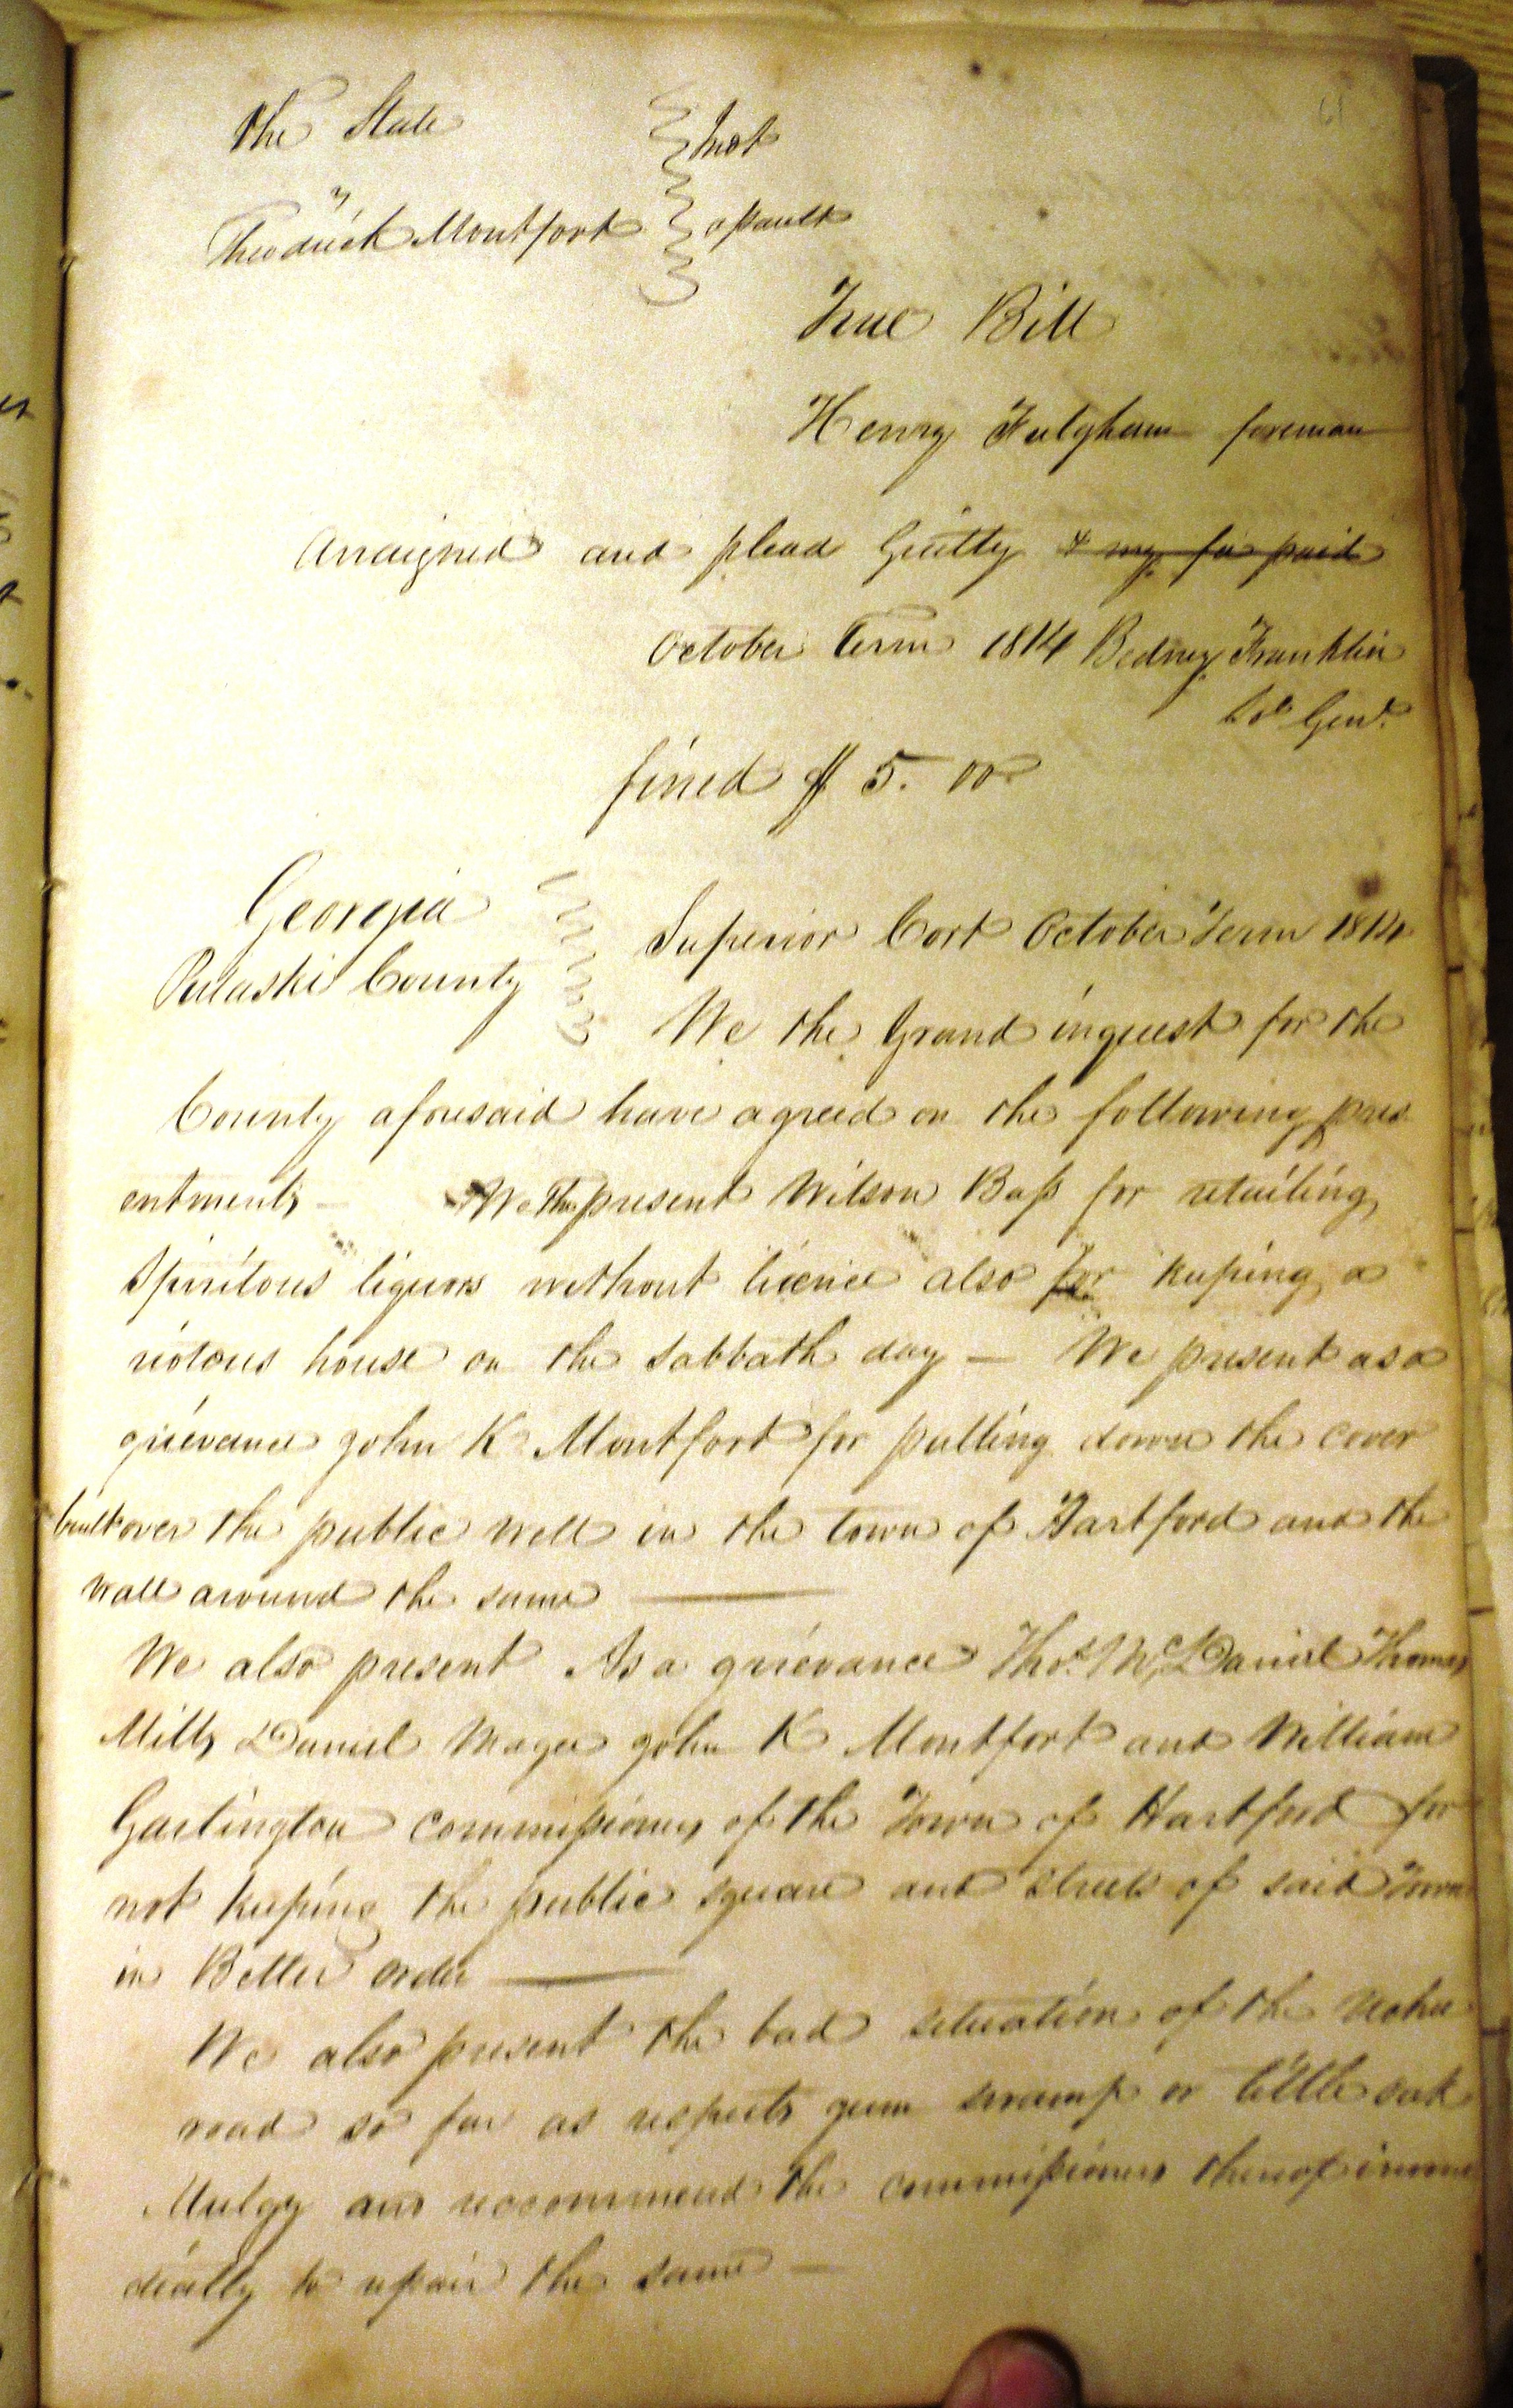 61
the State
vs
Theodrick Montfort
Indt
assault
True Bill
Henry Fulgham foreman
Arraigned and plead Guilty & my fee paid
October Term 1814 Bedney Franklin
Sol Genl.
fined $ 5. 00
Georgia
Pulaski County
Superior Cort October Term 1814
We the Grand inquest for the
County aforesaid have agreed on the following pres
entments — We The present Wilson Bass for retailing
Spiritous liquors without licence also for keeping a
riotous house on the Sabbath day — We present as a
grievance John K Montfort for pulling down the cover
built over the public well in the town of Hartford and the
wall around the same —
We also present As a grievance Thos. McDaniel Thomas
Mills Daniel John K Montfort and William
Garlington commissioners of the Town of Hartford for
not keeping the public square and streets of said Town
in Better order —
We also present the bad situation of the
road so far as respects gum swamp or little oak
Mulgy and recommend the commissioners thereof imme
diatly to repair the same —